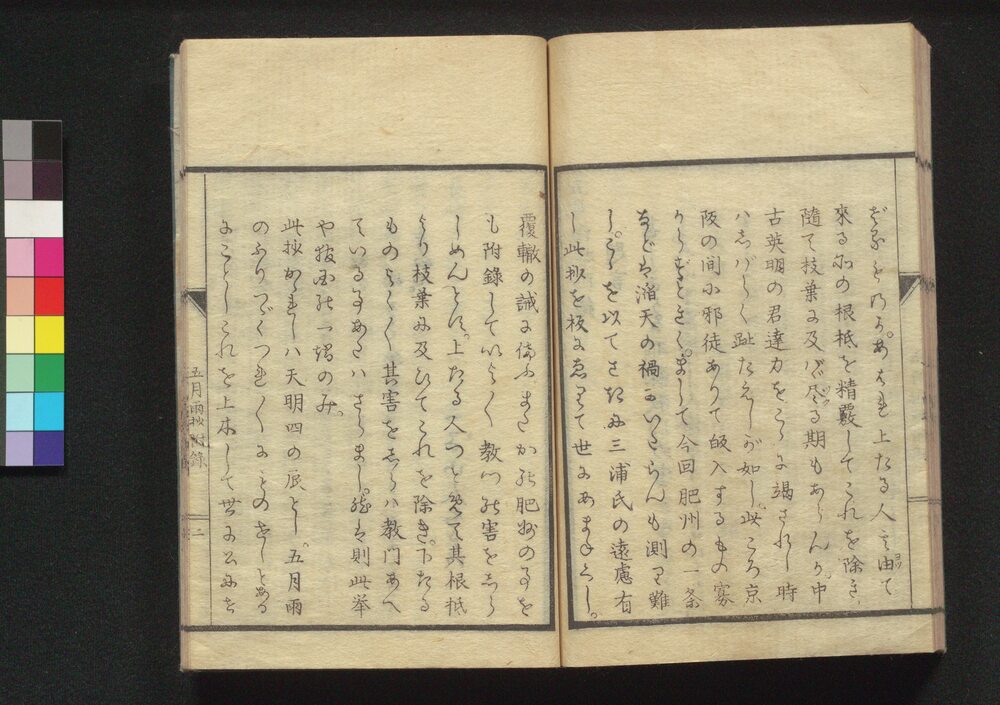 来る所の根柢を精覈してこれを除き、
隨て枝葉に及バゞ尽る期もあらんか。中
古英明の君達力をこゝに竭されし時
ハしばらく趾たえしが如し。此ころ京
阪の間に邪徒ありて敀入するもの寡
からずときく。まして今回肥州の一条
などは滔天の禍にいたらんも測り難
し。こゝを以てさきに三浦氏の遠慮有
し此抄を板にゑりて世にあまねくし。
覆轍の誡に備ふまたか北肥州の事を
も附錄していよ〳〵教門の害をしら
しめんとす。上たる人つとめて其根柢
より枝葉に及ひてこれを除き。下たる
ものよく〳〵其害をしらハ教門あへ
ている事あたハさらまし。然は則此挙
や
のみ。
此抄かきしハ天明四の辰とし。五月雨
のふりつゞくつれ〳〵にものせしとある
にことしこれを上木して世に公にせ
五月雨抄附錄
二